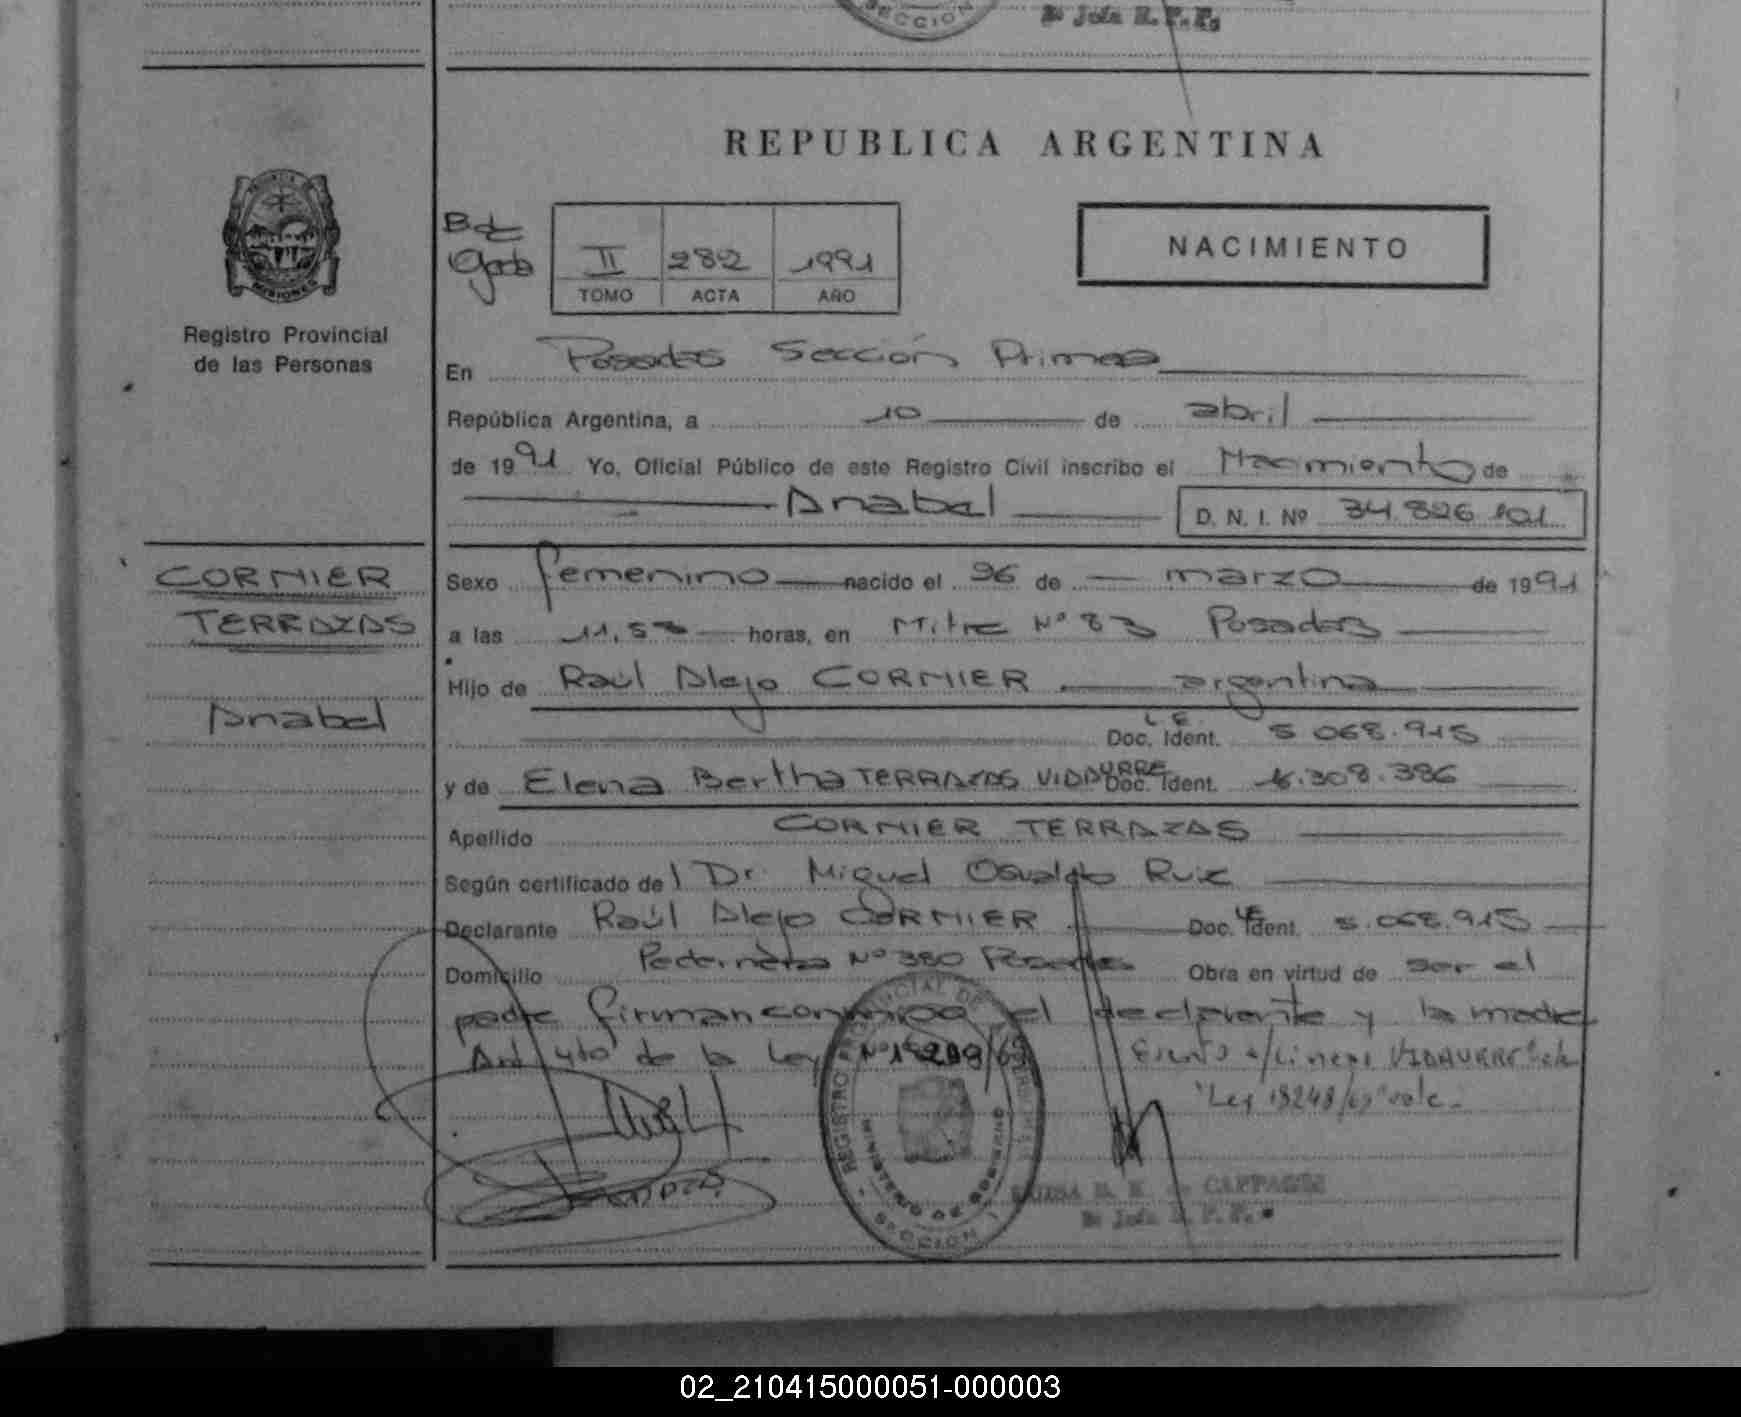 SECCION
REPUBLICA ARGENTINA
PROVINCIA DE MISIONES
Registro Provincial
de las Personas
II 282 1991
TOMO ACTA AÑO
NACIMIENTO
En Posadas Sección Primera
República Argentina, a 10 de abril
de 1991 Yo, Oficial Público de este Registro Civil inscribo el Nacimiento de
Anabel D. N. I. Nº 34.826.101
CORMIER
TERRAZAS
Anabel
Sexo femenino nacido el 26 de marzo de 1991
a las 11,58 horas, en Mitre Nº 83 Posadas
Hijo de Raúl Alejo CORMIER argentina
L.E. Doc. Ident. 5.068.915
y de Elena Bertha TERRAZAS VIDAURRE Doc. Ident. 16.308.386
Apellido CORMIER TERRAZAS
Según certificado del Dr. Miguel Osvaldo Ruiz
Declarante Raúl Alejo CORMIER L.E. Doc. Ident. 5.068.915
Domicilio Pedernera Nº 380 Posadas Obra en virtud de ser el
padre firman conmigo el declarante y la madre
Art 4to de la Ley Nº 18248/69 E/líneas "VIDAURRE"
"Ley 18248/69" vale.
REGISTRO PROVINCIAL DE LAS PERSONAS
MINISTERIO DE GOBIERNO
SECCION 1
02_210415000051-000003